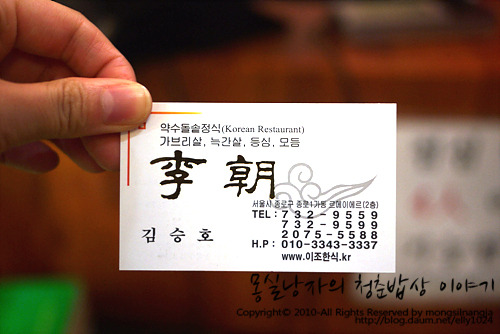 약수돌솥정식(Korean Restaurant)
가브리살, 늑간살, 등심, 모듬
李朝
서울시 종로구 종로1가동 르메이에르(2층)
TEL: 732-9559
732-9599
2075-5588
김승호
H.P: 010-3343-3337
www.이조한식.kr
몽실낭자의 청춘밥상 이야기
Copyright© 2010-All Rights Reserved by mongsilnangja
http://blog.daum.net/elly1024